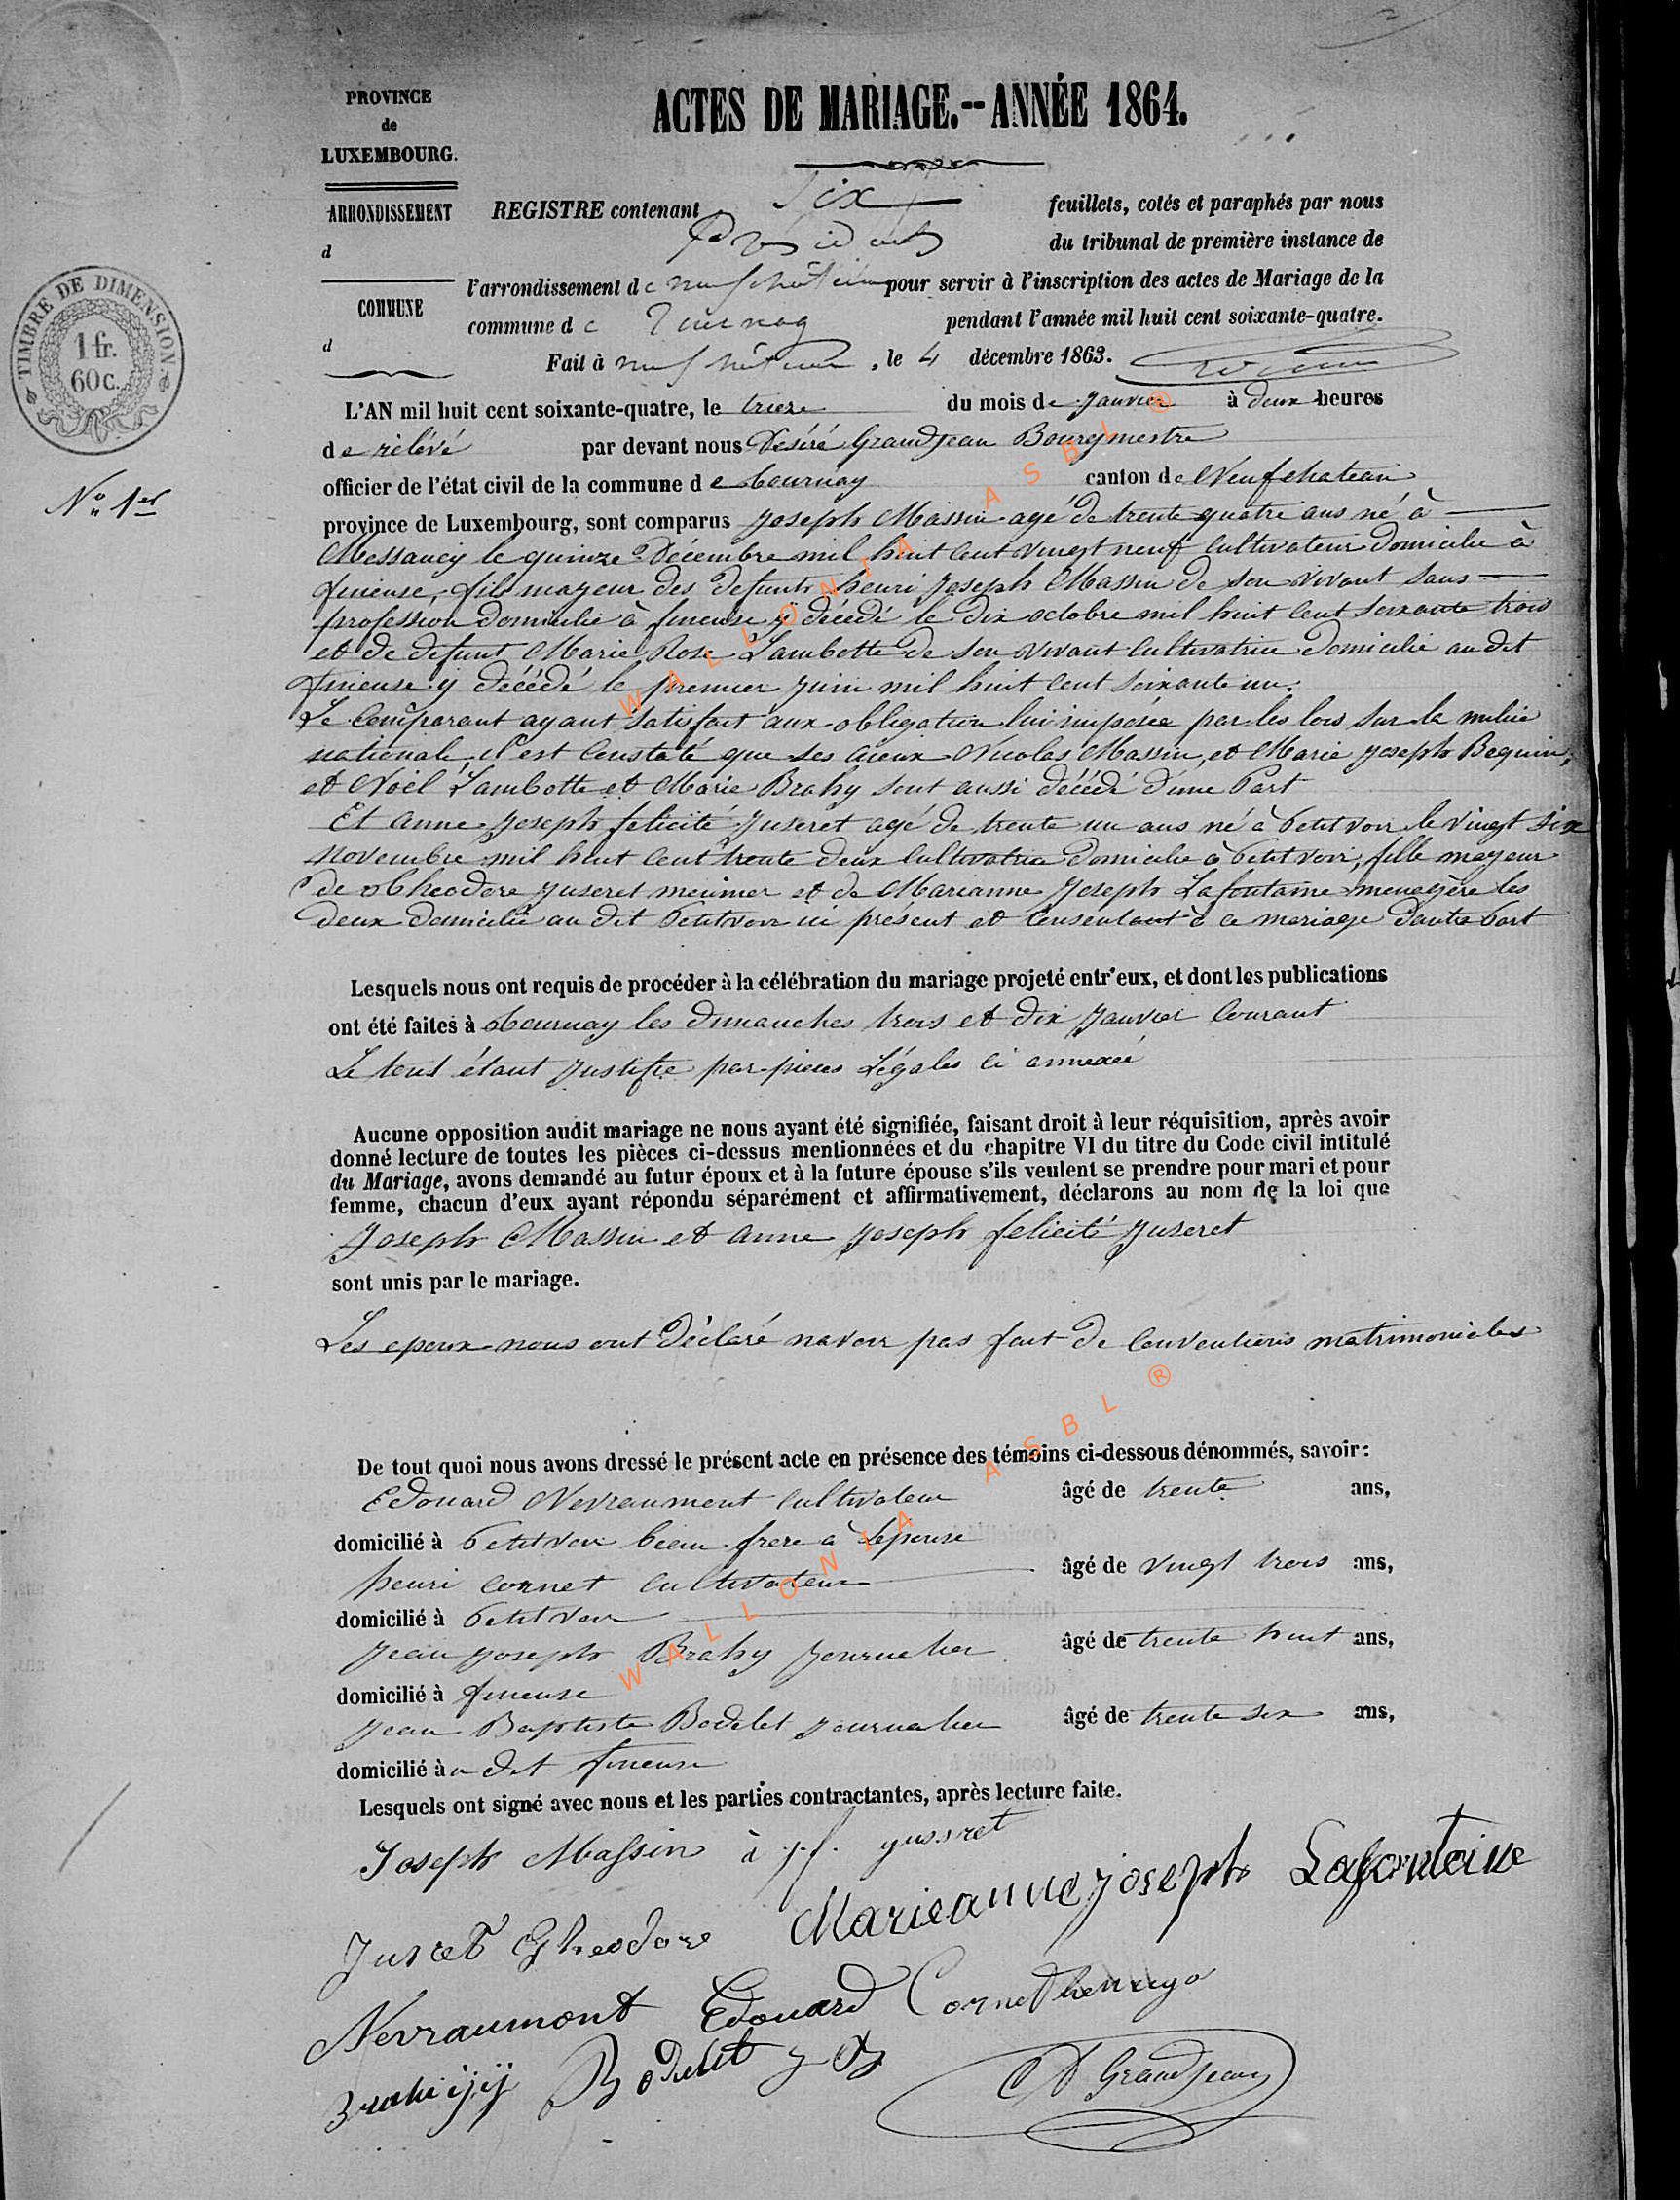 PROVINCE
de
LUXEMBOURG.
ACTES DE MARIAGE.-- ANNÉE 1864.
ARRONDISSEMENT
d
COMMUNE
d
REGISTRE contenant Six feuillets, cotés et paraphés par nous
Président du tribunal de première instance de
l'arrondissement de neufchâteau pour servir à l'inscription des actes de Mariage de la
commune de Tournay pendant l'année mil huit cent soixante-quatre.
Fait à neufchâteau, le 4 décembre 1863.
TIMBRE DE DIMENSION
1 fr.
60 c.
N° 1er
L'AN mil huit cent soixante-quatre, le trieze du mois de Janvier à deux heures
de rélévé par devant nous Désiré Grandjean Bourgmestre
officier de l'état civil de la commune de tournay canton de Neufchateau
province de Luxembourg, sont comparus Joseph Massin agé de trente quatre ans né à
Messancy le quinze Décembre mil huit cent vingt neuf cultivateur domicilié à
fineuse, fils mayeur des defunts henri Joseph Massin de son vivant sans
profession domicilié à fineuse y décédé le dix octobre mil huit cent soixante trois
et de defunt Marie Rose Lambotte de son vivant cultivatrice domicilié au dit
fineuse y décédé le premier juin mil huit cent soixante un.
Le comparant ayant satisfait aux obligation lui imposée par les lois sur la milice
nationale, il est constaté que ses aieux Nicolas Massin, et Marie Joseph Bequin,
et Noël Lambotte et Marie Brahy sont aussi décédé d'une Part
Et anne Joseph felicité Juseret agé de trente un ans né à Petitvoir le vingt six
novembre mil huit cent trente deux cultivatrice domicilié à Petitvoir, fille mayeur
de théodore Juseret meunier et de Marianne Joseph Lafontaine menagère les
deux domicilié au dit Petitvoir ici présent et consentant à ce mariage d'autre Part
Lesquels nous ont requis de procéder à la célébration du mariage projeté entr'eux, et dont les publications
ont été faites à tournay les dimanches trois et dix Janvier Courant
Le tout étant justifie par pieces Légales ci annexée
Aucune opposition audit mariage ne nous ayant été signifiée, faisant droit à leur réquisition, après avoir
donné lecture de toutes les pièces ci-dessus mentionnées et du chapitre VI du titre du Code civil intitulé
du Mariage, avons demandé au futur époux et à la future épouse s'ils veulent se prendre pour mari et pour
femme, chacun d'eux ayant répondu séparément et affirmativement, déclarons au nom de la loi que
Joseph Massin et anne Joseph felicité Juseret
sont unis par le mariage.
Les epoux nous ont déclaré navoir pas fait de conventions matrimoniales
De tout quoi nous avons dressé le présent acte en présence des témoins ci-dessous dénommés, savoir:
Edouard Nevraumont cultivateur âgé de trente ans,
domicilié à Petitvoir beau frere à Lepouse
henri cornet cultivateur âgé de vingt trois ans,
domicilié à Petitvoir
Jean Joseph Brahy Journalier âgé de trente huit ans,
domicilié à fineuse
Jean Baptiste Bodelet Journalier âgé de trente six ans,
domicilié à u dit fineuse
Lesquels ont signé avec nous et les parties contractantes, après lecture faite.
Joseph Massin à j.f. juseret
Jusret Theodore Marieanne joseph Lafontaine
Nevraumont Edouard Cornet henry
Brahi jj Bodelet J B
D Grandjean
WALLONIA ASBL ®
WALLONIA ASBL ®